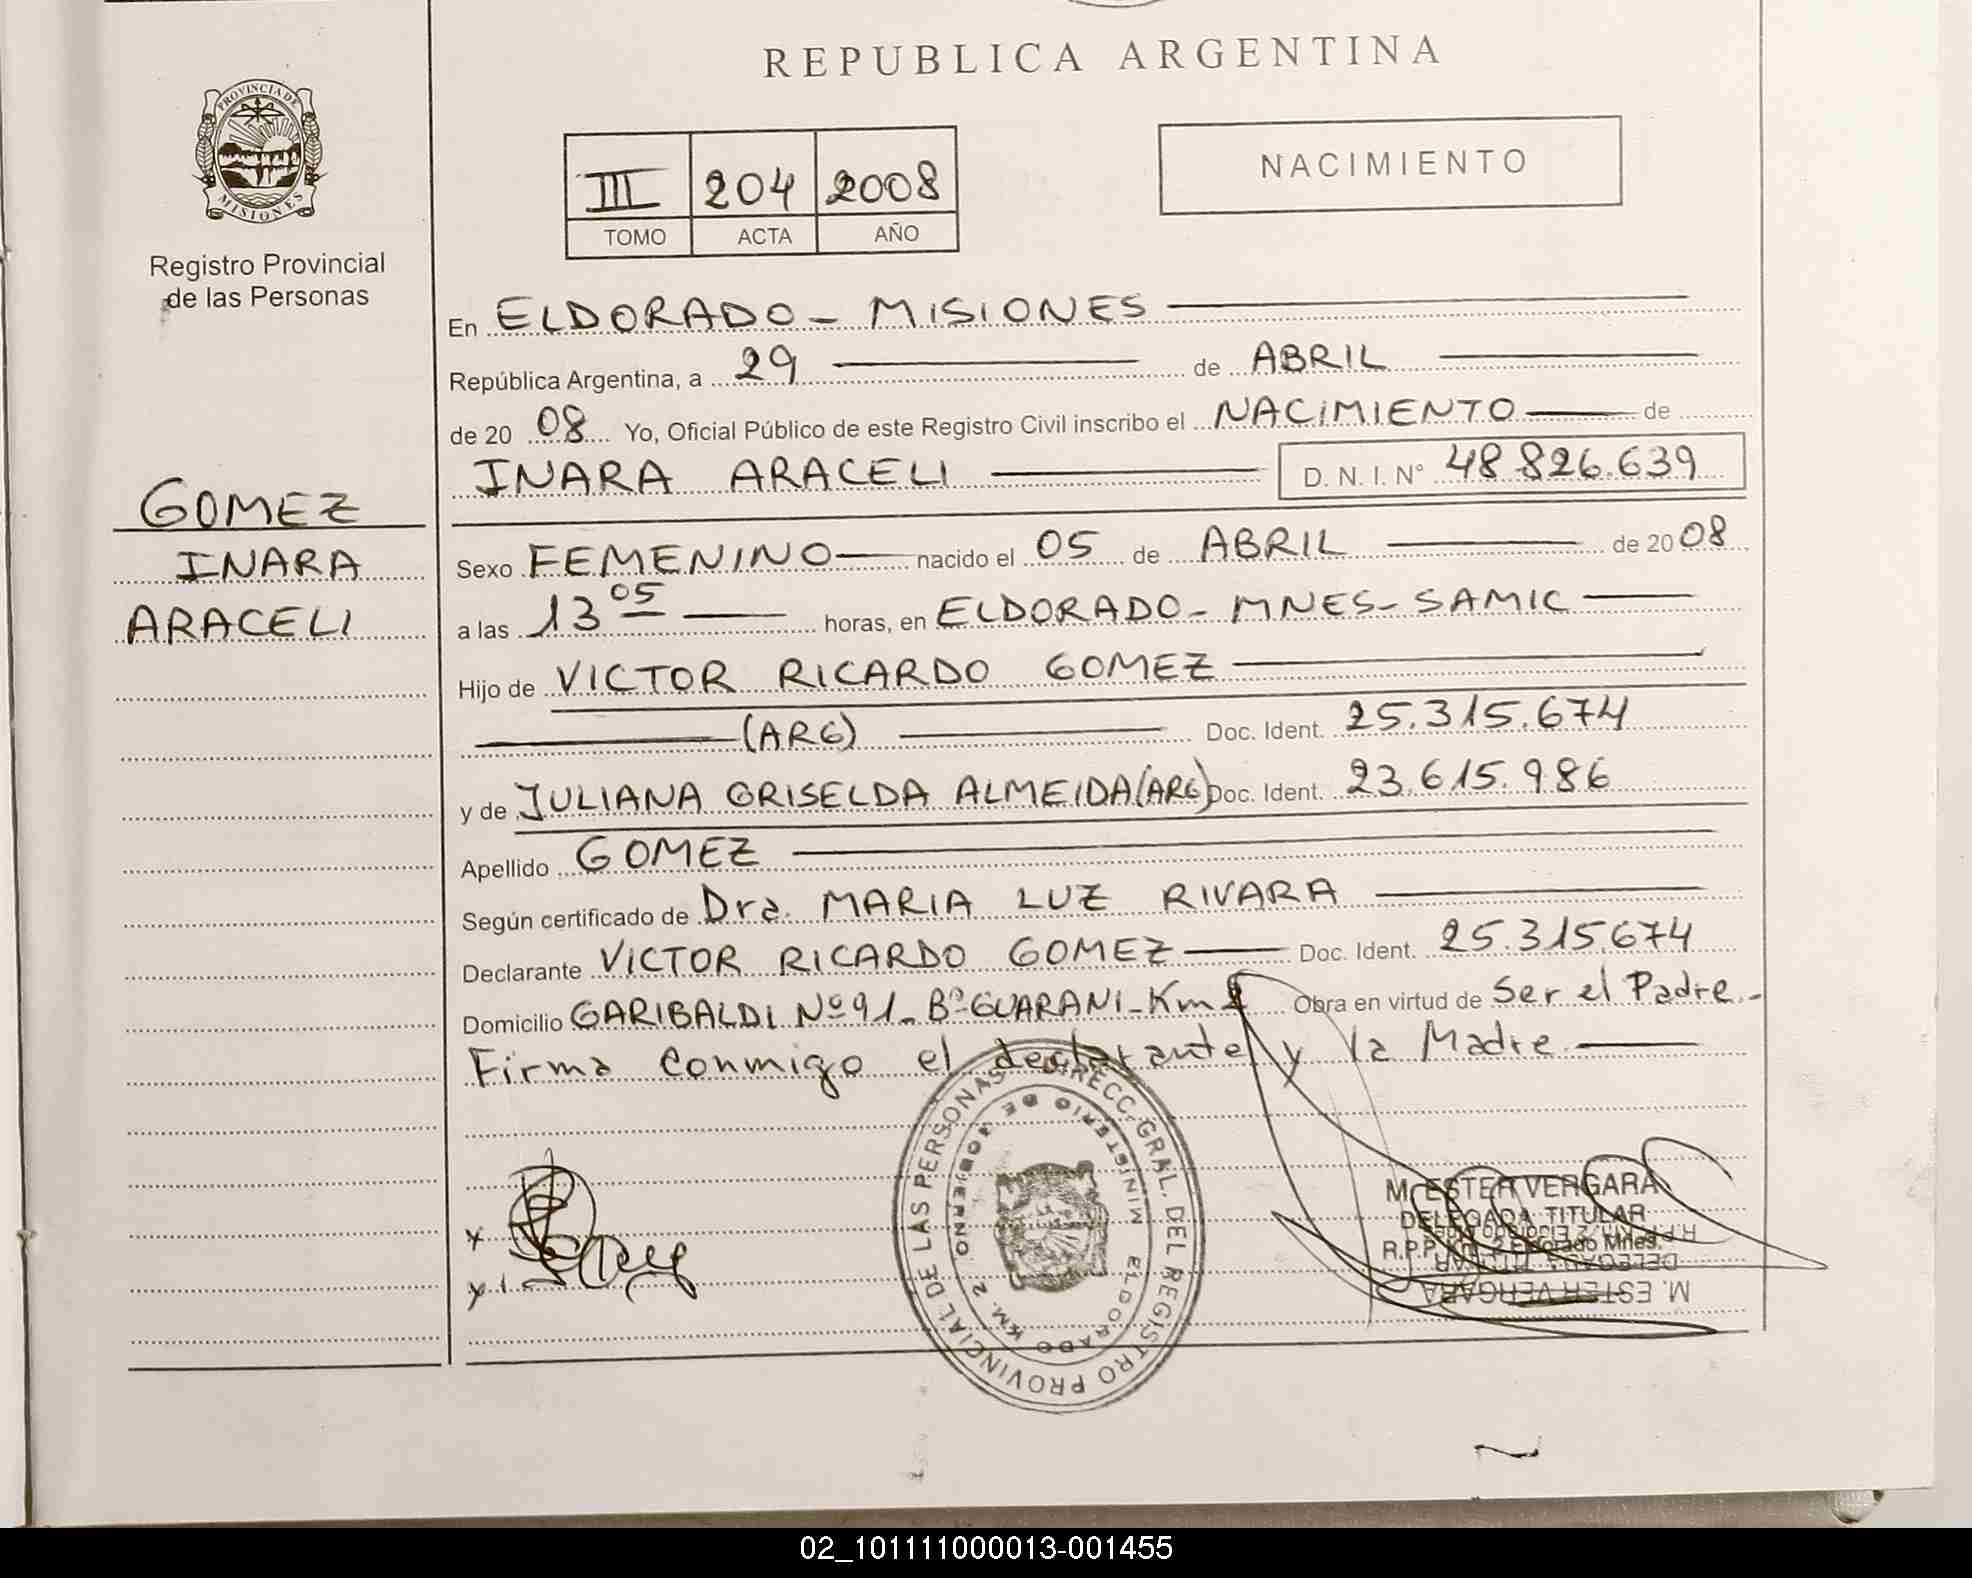 REPUBLICA ARGENTINA
PROVINCIA DE
MISIONES
Registro Provincial
de las Personas
III 204 2008
TOMO ACTA AÑO
NACIMIENTO
GOMEZ
INARA
ARACELI
En ELDORADO - MISIONES
República Argentina, a 29 de ABRIL
de 20 08 Yo, Oficial Público de este Registro Civil inscribo el NACIMIENTO de
INARA ARACELI D. N. I. N° 48.826.639
Sexo FEMENINO nacido el 05 de ABRIL de 20 08
a las 13 05 horas, en ELDORADO - MNES - SAMIC
Hijo de VICTOR RICARDO GOMEZ
(ARG) Doc. Ident. 25.315.674
y de JULIANA GRISELDA ALMEIDA (ARG) Doc. Ident. 23.615.986
Apellido GOMEZ
Según certificado de Dra. MARIA LUZ RIVARA
Declarante VICTOR RICARDO GOMEZ Doc. Ident. 25.315.674
Domicilio GARIBALDI Nº 91 - Bº GUARANI - Km Obra en virtud de Ser el Padre.-
Firma conmigo el declarante y la Madre
DIRECC. GRAL. DEL REGISTRO PROVINCIAL DE LAS PERSONAS
MINISTERIO DE GOBIERNO
ELDORADO KM. 2
M. ESTER VERGARA
DELEGADA TITULAR
R.P.P. Km. 2 Eldorado Mnes.
R.P.P. Km. 2 Eldorado Mnes.
DELEGADA TITULAR
M. ESTER VERGARA
02_101111000013-001455